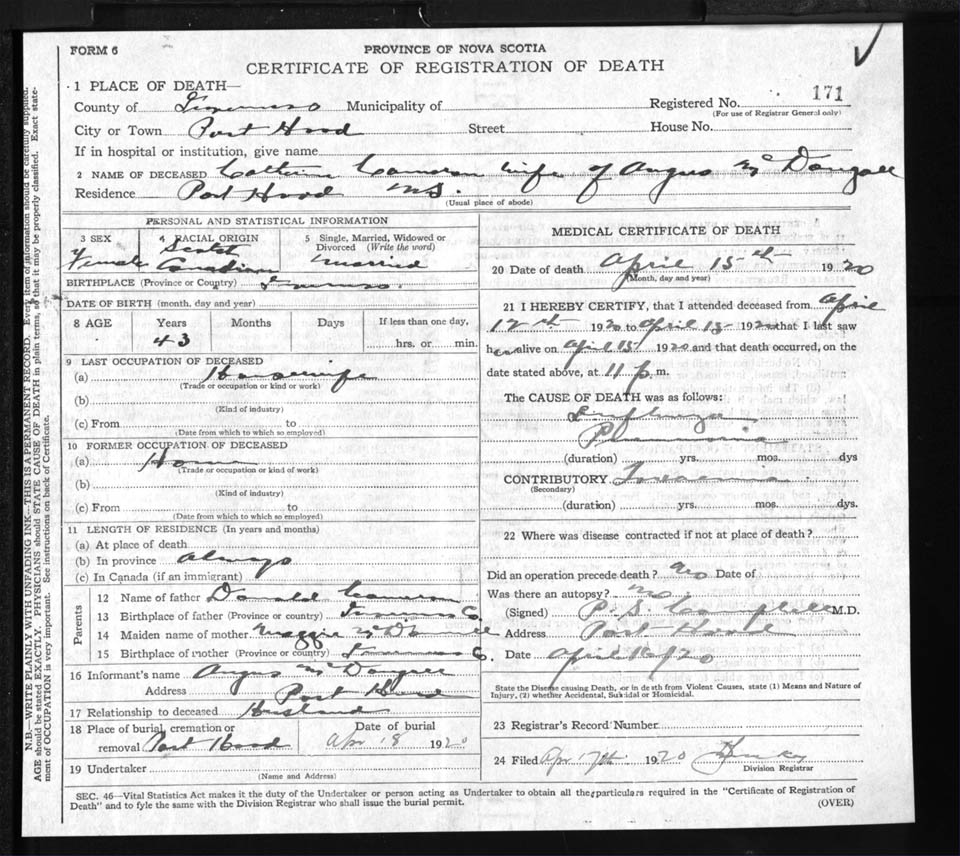 FORM 6
PROVINCE OF NOVA SCOTIA
CERTIFICATE OF REGISTRATION OF DEATH
1 PLACE OF DEATH—
County of Inverness Municipality of Registered No. 171
(For use of Registrar General only)
City or Town Port Hood Street House No.
If in hospital or institution, give name
2 NAME OF DECEASED Catherine Cameron wife of Angus McDougall
Residence Port Hood N.S.
(Usual place of abode)
PERSONAL AND STATISTICAL INFORMATION
3 SEX
Female
4 RACIAL ORIGIN
Scotch
Canadian
5 Single, Married, Widowed or
Divorced (Write the word)
Married
BIRTHPLACE (Province or Country) Inverness.
DATE OF BIRTH (month, day and year)
8 AGE Years Months Days If less than one day,
43 hrs. or min.
9 LAST OCCUPATION OF DECEASED
(a) Housewife
(Trade or occupation or kind or work)
(b)
(Kind of industry)
(c) From to
(Date from which to which so employed)
10 FORMER OCCUPATION OF DECEASED
(a)
(Trade or occupation or kind of work)
(b)
(Kind of industry)
(c) From to
(Date from which to which so employed)
11 LENGTH OF RESIDENCE (In years and months)
(a) At place of death
(b) In province always
(c) In Canada (if an immigrant)
Parents
12 Name of father Donald Cameron
13 Birthplace of father (Province or country) Inverness C.
14 Maiden name of mother Maggie
15 Birthplace of mother (Province or country) Inverness C.
16 Informant's name Angus McDougall
Address Port Hood
17 Relationship to deceased Husband
18 Place of burial, cremation or
removal Port Hood
Date of burial
Apr 18 1920
19 Undertaker
(Name and Address)
MEDICAL CERTIFICATE OF DEATH
20 Date of death April 15th 1920
(Month, day and year)
21 I HEREBY CERTIFY, that I attended deceased from April
12th 1920 to April 15 1920 that I last saw
her alive on April 15 1920 and that death occurred, on the
date stated above, at 11 p.m.
The CAUSE OF DEATH was as follows:
Influenza
Pneumonia
(duration) yrs. mos. dys
CONTRIBUTORY
(Secondary)
(duration) yrs. mos. dys.
22 Where was disease contracted if not at place of death?
Did an operation precede death? No Date of
Was there an autopsy? no
(Signed) P. S. Campbell M.D.
Address Port Hood
Date April 20
State the Disease causing Death, or in death from Violent Causes, state (1) Means and Nature of
Injury, (2) whether Accidental, Suicidal or Homicidal.
23 Registrar's Record Number
24 Filed Apr 17th 1920
Division Registrar
SEC. 46—Vital Statistics Act makes it the duty of the Undertaker or person acting as Undertaker to obtain all the particulars required in the "Certificate of Registration of
Death" and to fyle the same with the Division Registrar who shall issue the burial permit.
(OVER)
N.B.—WRITE PLAINLY WITH UNFADING INK—THIS IS A PERMANENT RECORD. Every item of information should be carefully supplied.
AGE should be stated EXACTLY. PHYSICIANS should STATE CAUSE OF DEATH in plain terms, so that it may be properly classified. Exact state-
ment of OCCUPATION is very important. See instructions on back of Certificate.